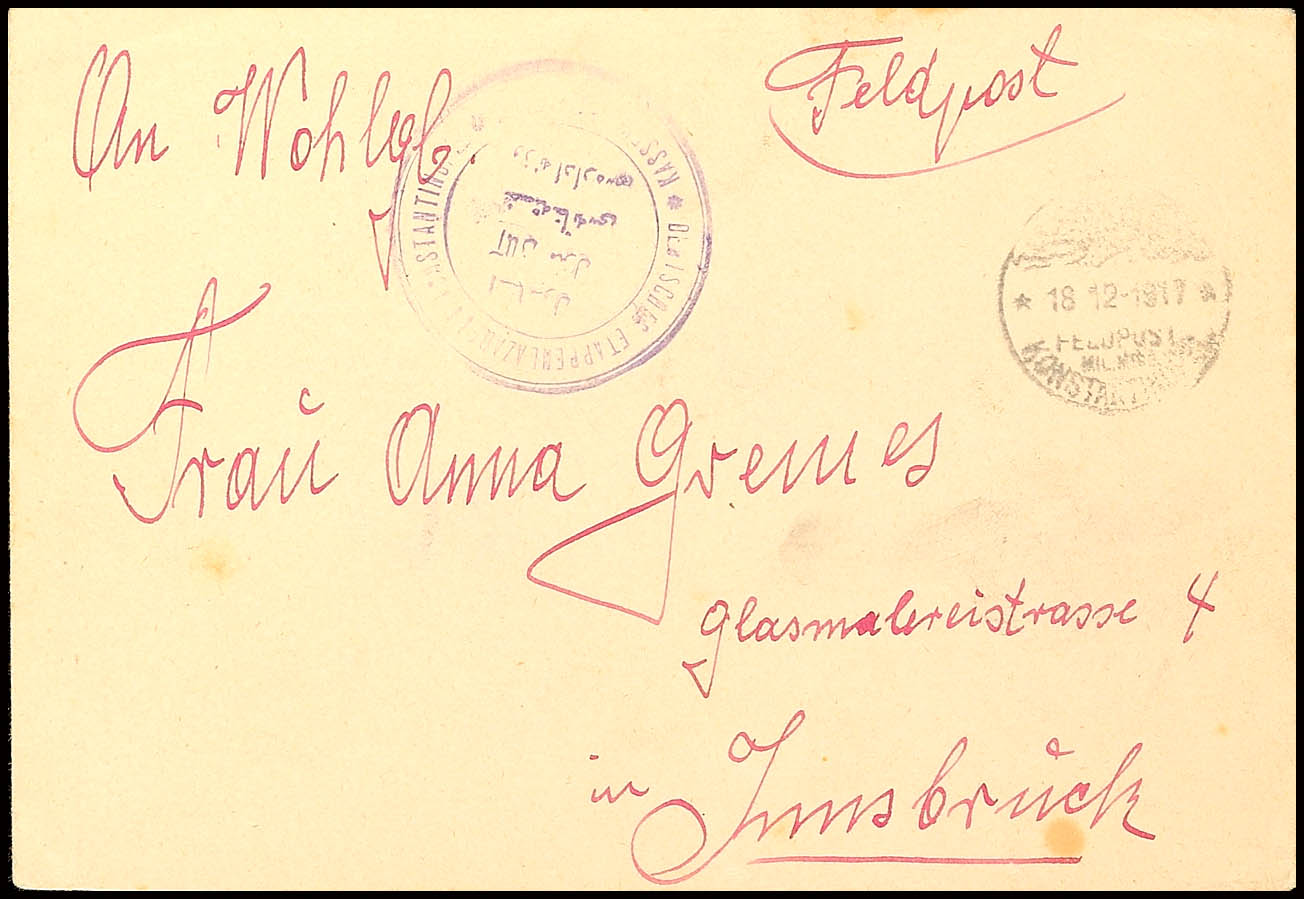 An Wohlgb.
Feldpost
* DEUTSCHES ETAPPENLAZARETT KONSTANTINOPEL *
* 18 12-1917 *
FELDPOST
MIL. MISS.
KONSTANTINOPEL
Frau Anna Gremes
Glasmalereistrasse 4
in Innsbruck